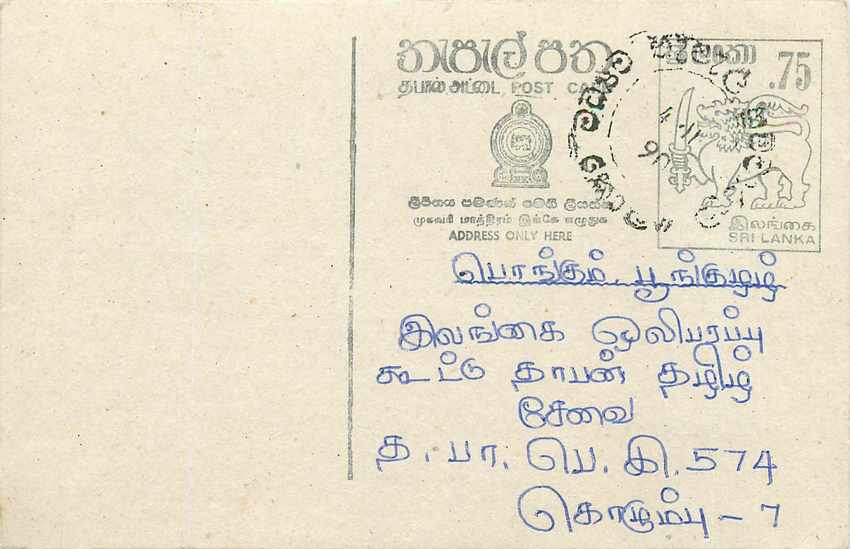 තැපැල් පත
தபால் அட்டை POST CARD
ලිපිනය පමණක් මෙහි ලියන්න
முகவரி மாத்திரம் இங்கே எழுதுக
ADDRESS ONLY HERE
ශ්‍රී ලංකා
.75
இலங்கை
SRI LANKA
90
பொங்கும் பூங்குழழ்
இலங்கை ஒலிபரப்பு
கூட்டு தாபன் தழிழ்
சேவை
த. பா. பெ. கி. 574
கொழும்பு - 7